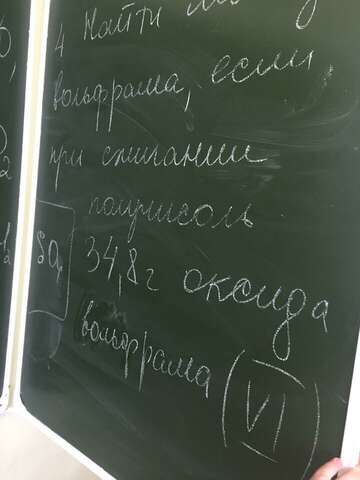 4 Найти
вольфрама, если
при сжигании
получисоль
34,8г оксида
вольфрама (VI)